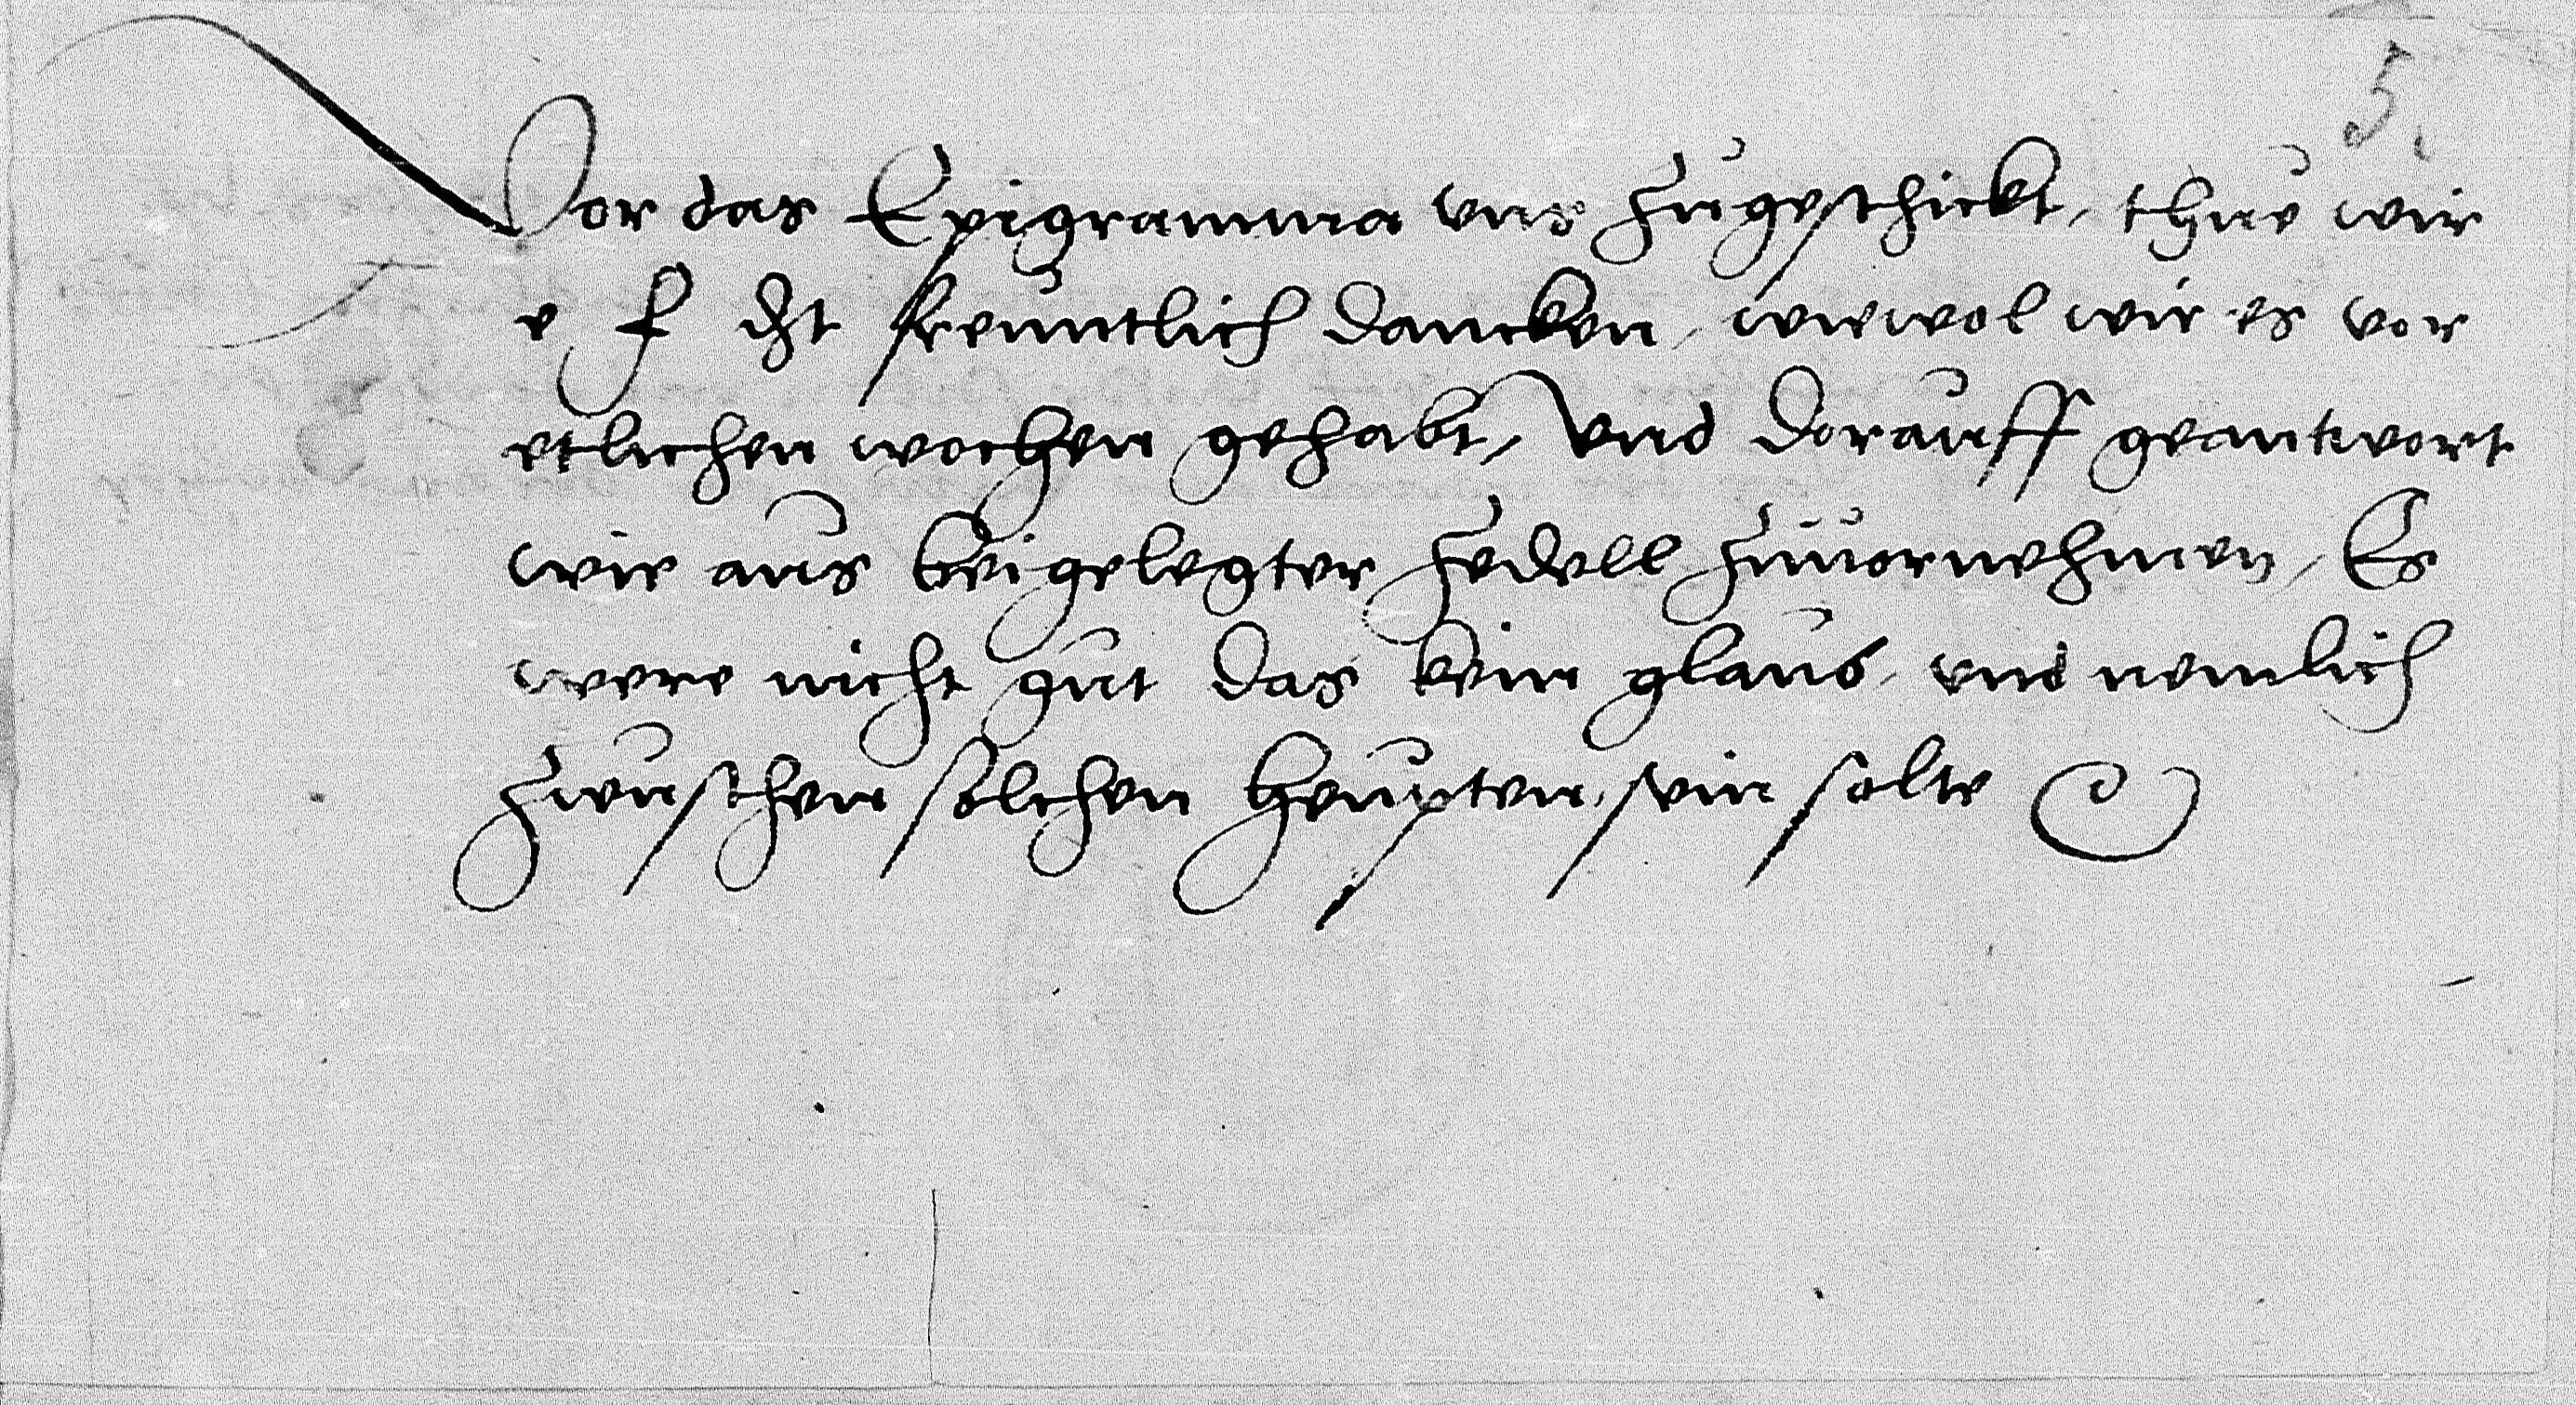 5.
Vor das Epigramma vns zugeschickt, thue wir
e f g freuntlich dancken, wiewol wir es vor
etlichen wochen gehabt, Vnd dorauff geantwort
wie aus beigelegter zedell zuuornehmen, Es
were nicht gut das kein glaub, vnd nemlich
zwuschen solchen heupten, sein solte